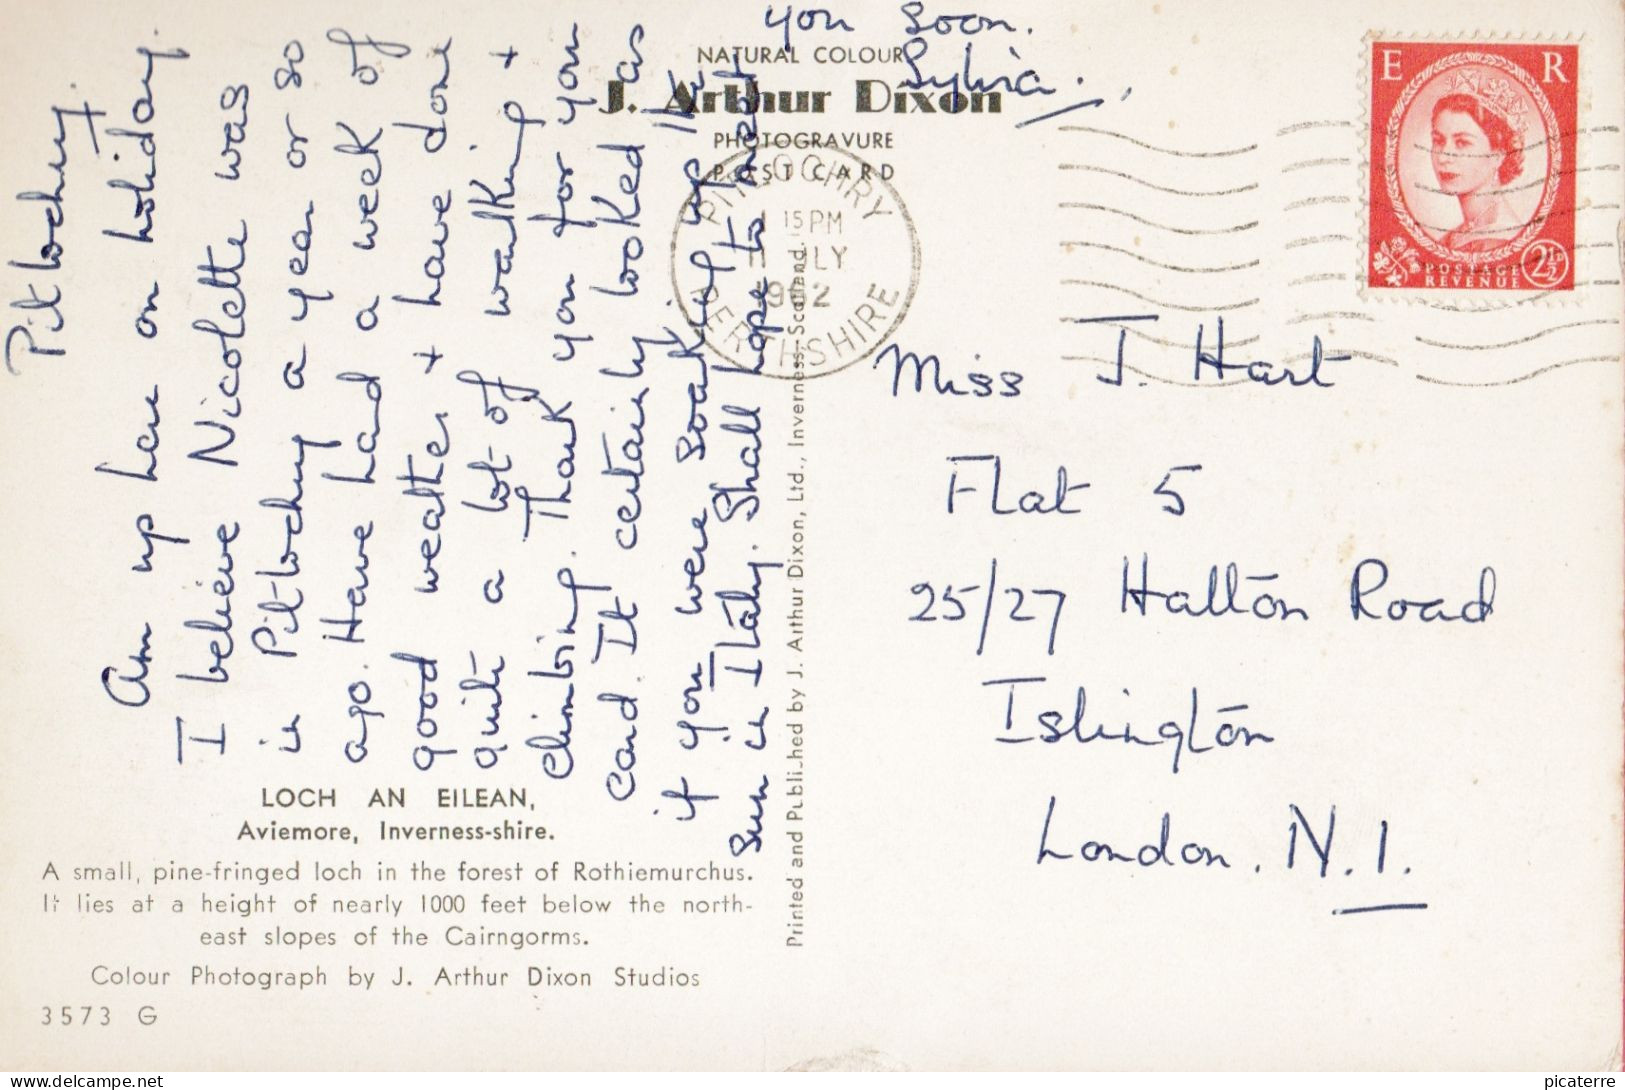 Pitlochry.
Am up here on holiday.
I believe Nicolette was
in Pitlochry a year or so
ago. Have had a week of
good weather + have done
quite a lot of walking +
climbing. Thank you for your
card. It certainly looked as
if you were soaking up the
sun in Italy. Shall hope to meet
you soon.
Sylvia.
NATURAL COLOUR
J. Arthur Dixon
PHOTOGRAVURE
POST CARD
PITLOCHRY
15 PM
JLY
1962
PERTHSHIRE
E R
POSTAGE
REVENUE
2½D
Miss J. Hart
Flat 5
25/27 Halton Road
Islington
London. N.1.
Printed and Published by J. Arthur Dixon, Ltd., Inverness, Scotland.
LOCH AN EILEAN,
Aviemore, Inverness-shire.
A small, pine-fringed loch in the forest of Rothiemurchus.
It lies at a height of nearly 1000 feet below the north-
east slopes of the Cairngorms.
Colour Photograph by J. Arthur Dixon Studios
3573 G
www.delcampe.net
picaterre